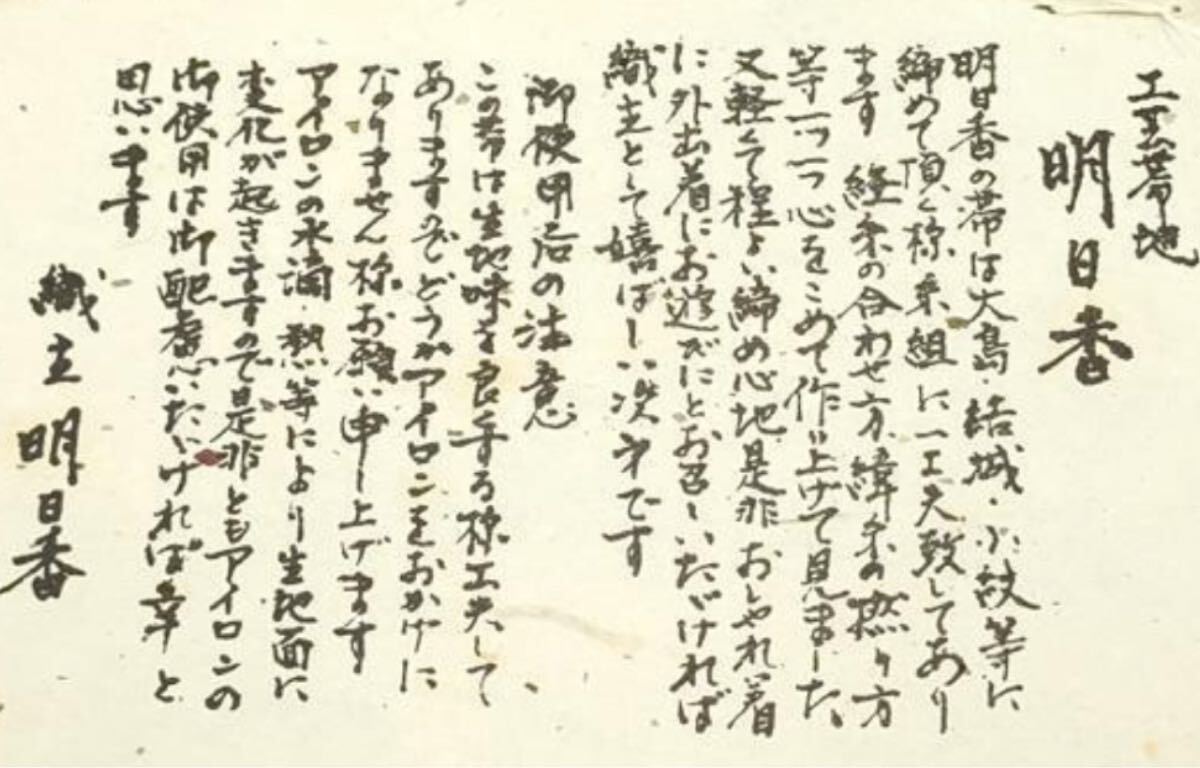 工芸帯地
明日香
明日香の帯は大島・結城・小紋等に
締めて頂く様糸組に一工夫致してあり
ます 経糸の合わせ方、緯糸の撚り方
等一つ一つ心をこめて作り上げて見ました、
又軽くて程よい締め心地是非おしゃれ着
に外出着にお遊びにとお召しいたゞければ
織主として嬉ばしい次才です
御使用后の注意
この帯は生地味を良くする様工夫して
ありますのでどうかアイロンをおかけに
なりません様お願い申し上げます
アイロンの水滴・熱等により生地面に
変化が起きますので是非ともアイロンの
御使用は御配慮いたゞければ幸と
思います
織主 明日香